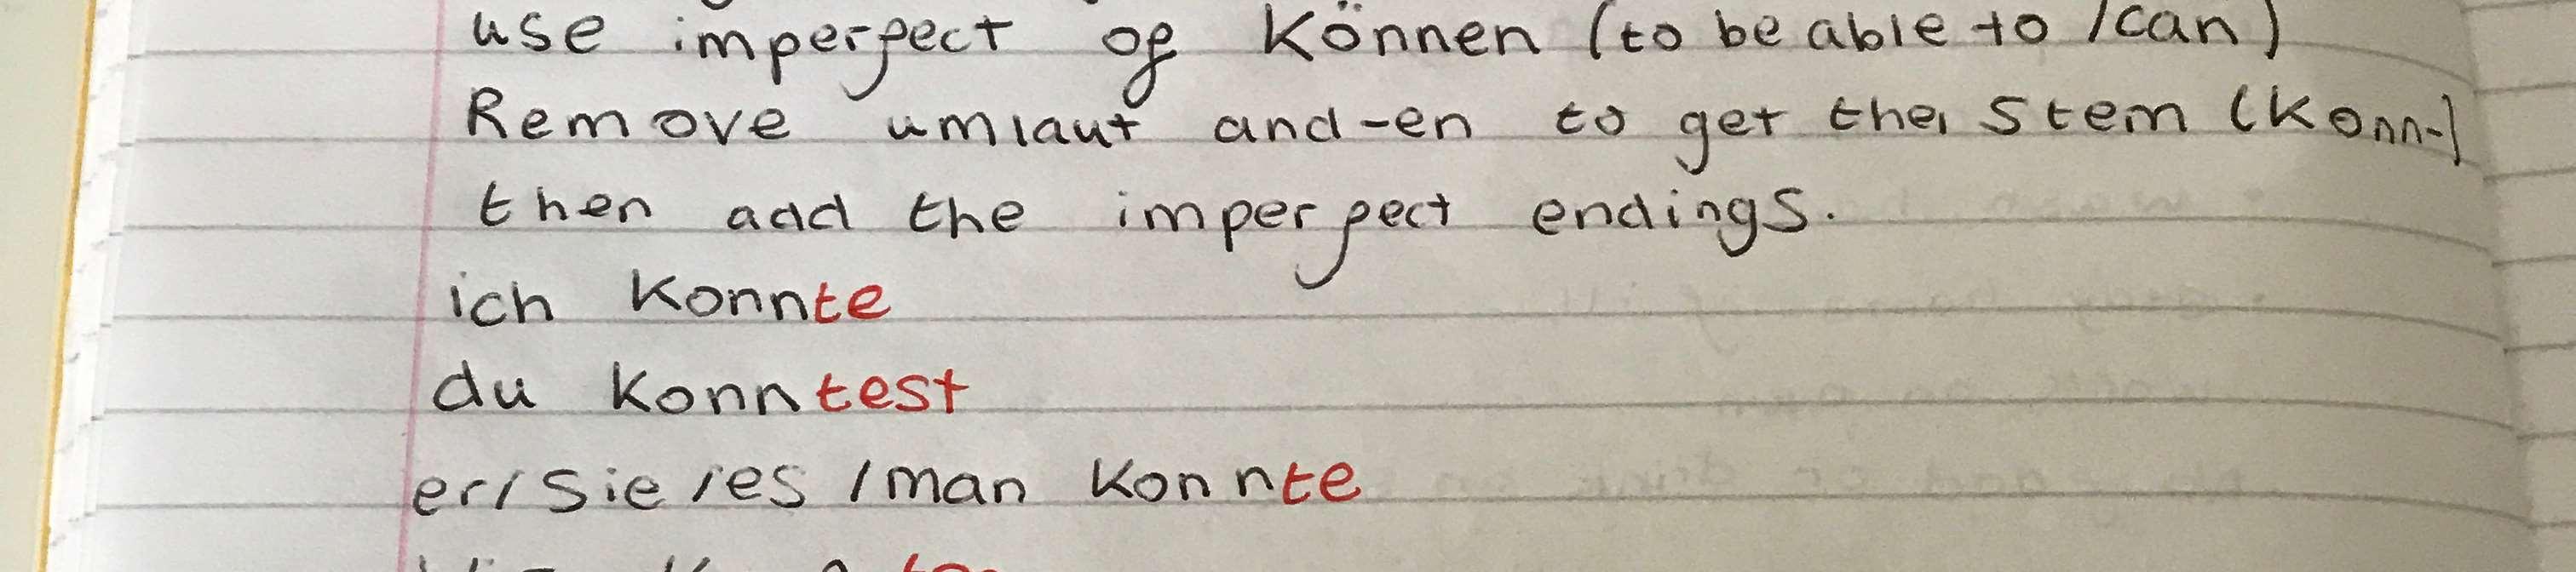 use imperfect of können (to be able to /can)
Remove umlaut and -en to get the stem (konn-)
then add the imperfect endings.
ich konnte
du konntest
er/sie/es/man konnte